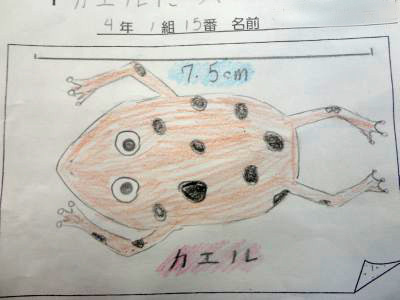 4年 1組 15番 名前
7.5cm
カエル